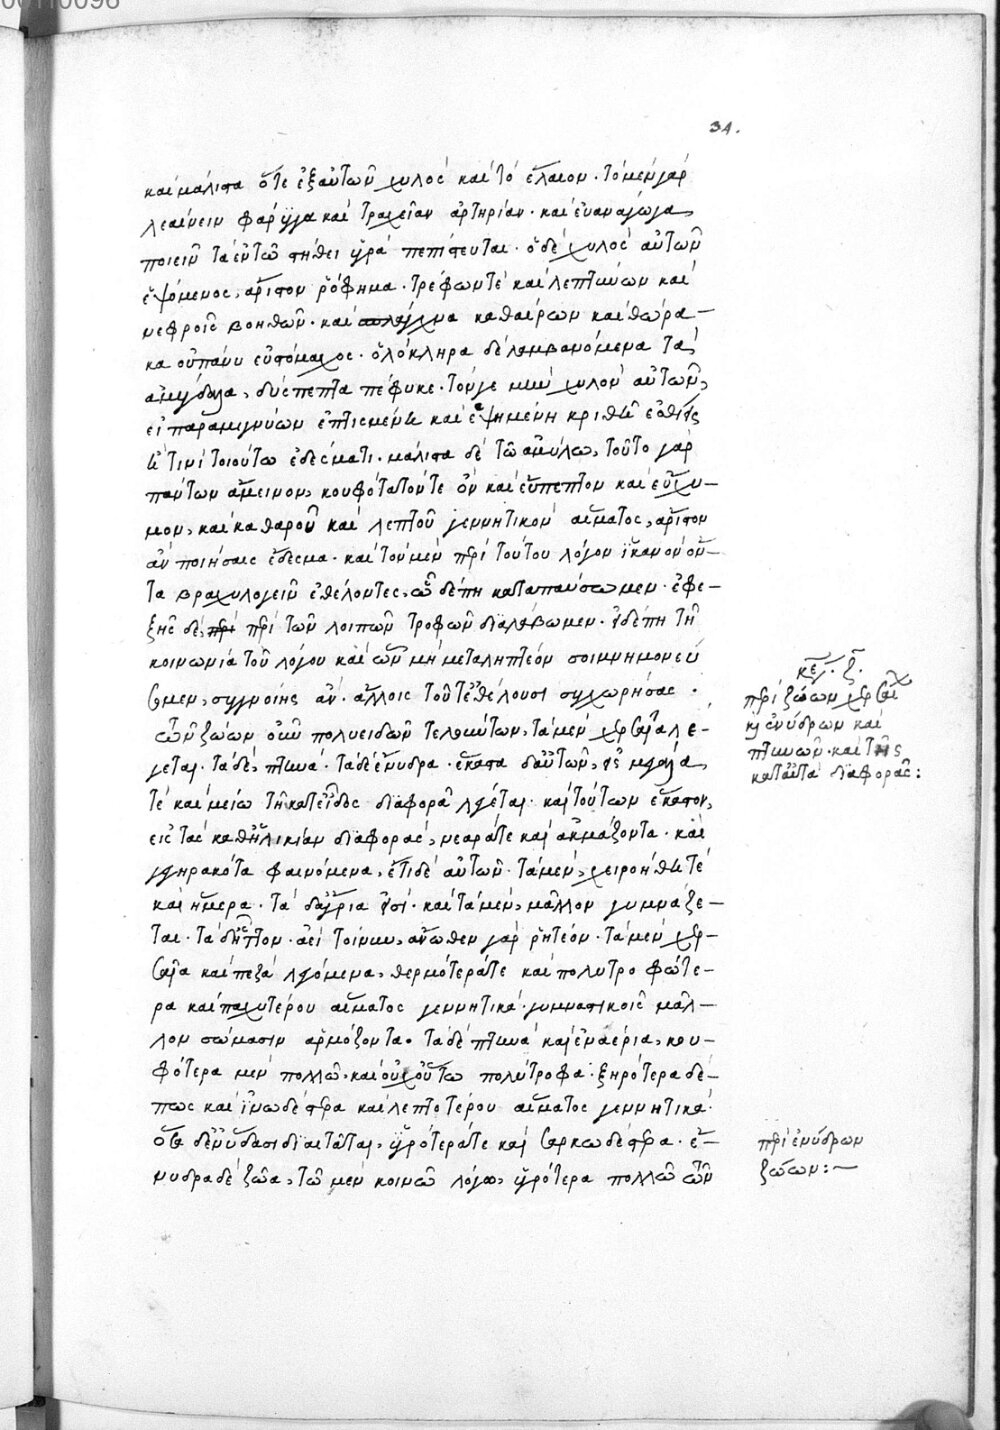 34.
καὶ μάλιστα ὅτε ἐξ αὐτῶν χυλὸς καὶ τὸ ἔλαιον· τὸ μὲν γὰρ
λεαίνειν φάρυγγα καὶ τραχεῖαν ἀρτηρίαν· καὶ εὐανάγωγα
ποιεῖν τὰ ἐν τῷ στήθει ὑγρὰ πεπίστευται· ὁ δὲ χυλὸς αὐτῶν
ἑψόμενος, ἄριστον ῥόφημα· τρέφων τὲ καὶ λεπτύνων καὶ
νεφροῖς βοηθῶν· καὶ καθαίρων καὶ θώρα-
κα οὐ πάνυ εὐστόμαχος· ὁλόκληρα δὲ λαμβανόμενα τὰ
ἀμύγδαλα, δύσπεπτα πέφυκε· τόν γε μὴν χυλὸν αὐτῶν,
εἰ παραμιγνύων ἐπτισμένη καὶ ἑψημένη κριθῇ ἐσθίῃς
ἤ τινι τοιούτω ἐδέσματι· μάλιστα δὲ τῶ ἀμύλω, τοῦτο γὰρ
πάντων ἄμεινον, κουφότατόν τε ὂν καὶ εὔπεπτον καὶ εὔχυ-
μον, καὶ καθαροῦ καὶ λεπτοῦ γεννητικὸν αἵματος, ἄριστον
ἂν ποιήσαις ἔδεσμα· καὶ τὸν μὲν περὶ τούτου λόγον ἱκανὸν ὄν-
τα βραχυλογεῖν ἐθέλοντες, ὧδέ πη καταπαύσωμεν· ἐφε-
ξῆς δὲ, περὶ τῶν λοιπῶν τροφῶν διαλάβωμεν· εἰ δέ πη τῆ
κοινωνία τοῦ λόγου καὶ ὧν μὴ μεταληπτέον σοι μνημονεύ
σωμεν, συγγνοίης ἂν· ἄλλοις τοῦτ' ἐθέλουσι συγχωρήσας·
τῶν ζώων οὖν πολυειδῶν τελούντων, τὰ μὲν χερσαῖα λέ-
γεται· τὰ δὲ, πτηνά· τὰ δὲ ἔνυδρα· ἕκαστα δ' αὖ τῶν, εἰς μεγάλα
τὲ καὶ μείω τῆ κατ' εἶδος διαφορᾶ λέγεται· καὶ τούτων ἕκαστον,
εἰς τὰς καθ' ἡλικίαν διαφοράς, νεαρά τε καὶ ἀκμάζοντα· καὶ
γηρακότα φαινόμενα, ἔτι δὲ αὐτῶν· τὰ μὲν, χειροήθη τὲ
καὶ ἥμερα· τὰ δ' ἄγρια εἰσί· καὶ τὰ μὲν, μᾶλλον γυμνάζε-
ται· τὰ δ' ἧττον· ἀεὶ τοίνυν, ἄνωθεν γὰρ ῥητέον· τὰ μὲν χερ-
σαῖα καὶ πεζὰ λεγόμενα, θερμότερά τε καὶ πολυτροφώτε-
ρα καὶ παχυτέρου αἵματος γεννητικά· γυμναστικοῖς μᾶλ-
λον σώμασιν ἁρμόζοντα· τὰ δὲ πτηνὰ καὶ ἐναέρια, κου-
φότερα μὲν πολλῶ, καὶ οὐχ οὕτω πολύτροφα· ξηρότερα δέ-
πως καὶ ἰνωδέστερα καὶ λεπτοτέρου αἵματος γεννητικά·
ὅσα δ' ἐν ὕδασι διαιτᾶται, ὑγρότερά τε καὶ σαρκωδέστερα· ἔ-
νυδρα δὲ ζῶα, τῶ μὲν κοινῶ λόγω, ὑγρότερα πολλῶ ὧν
κεφ. ζ.
περὶ ζώων χερσαί
καὶ ἐνύδρων καὶ
πτηνῶν· καὶ τῆς
κατ' αὐτὰ διαφορᾶς:
περὶ ἐνύδρων
ζώων:~